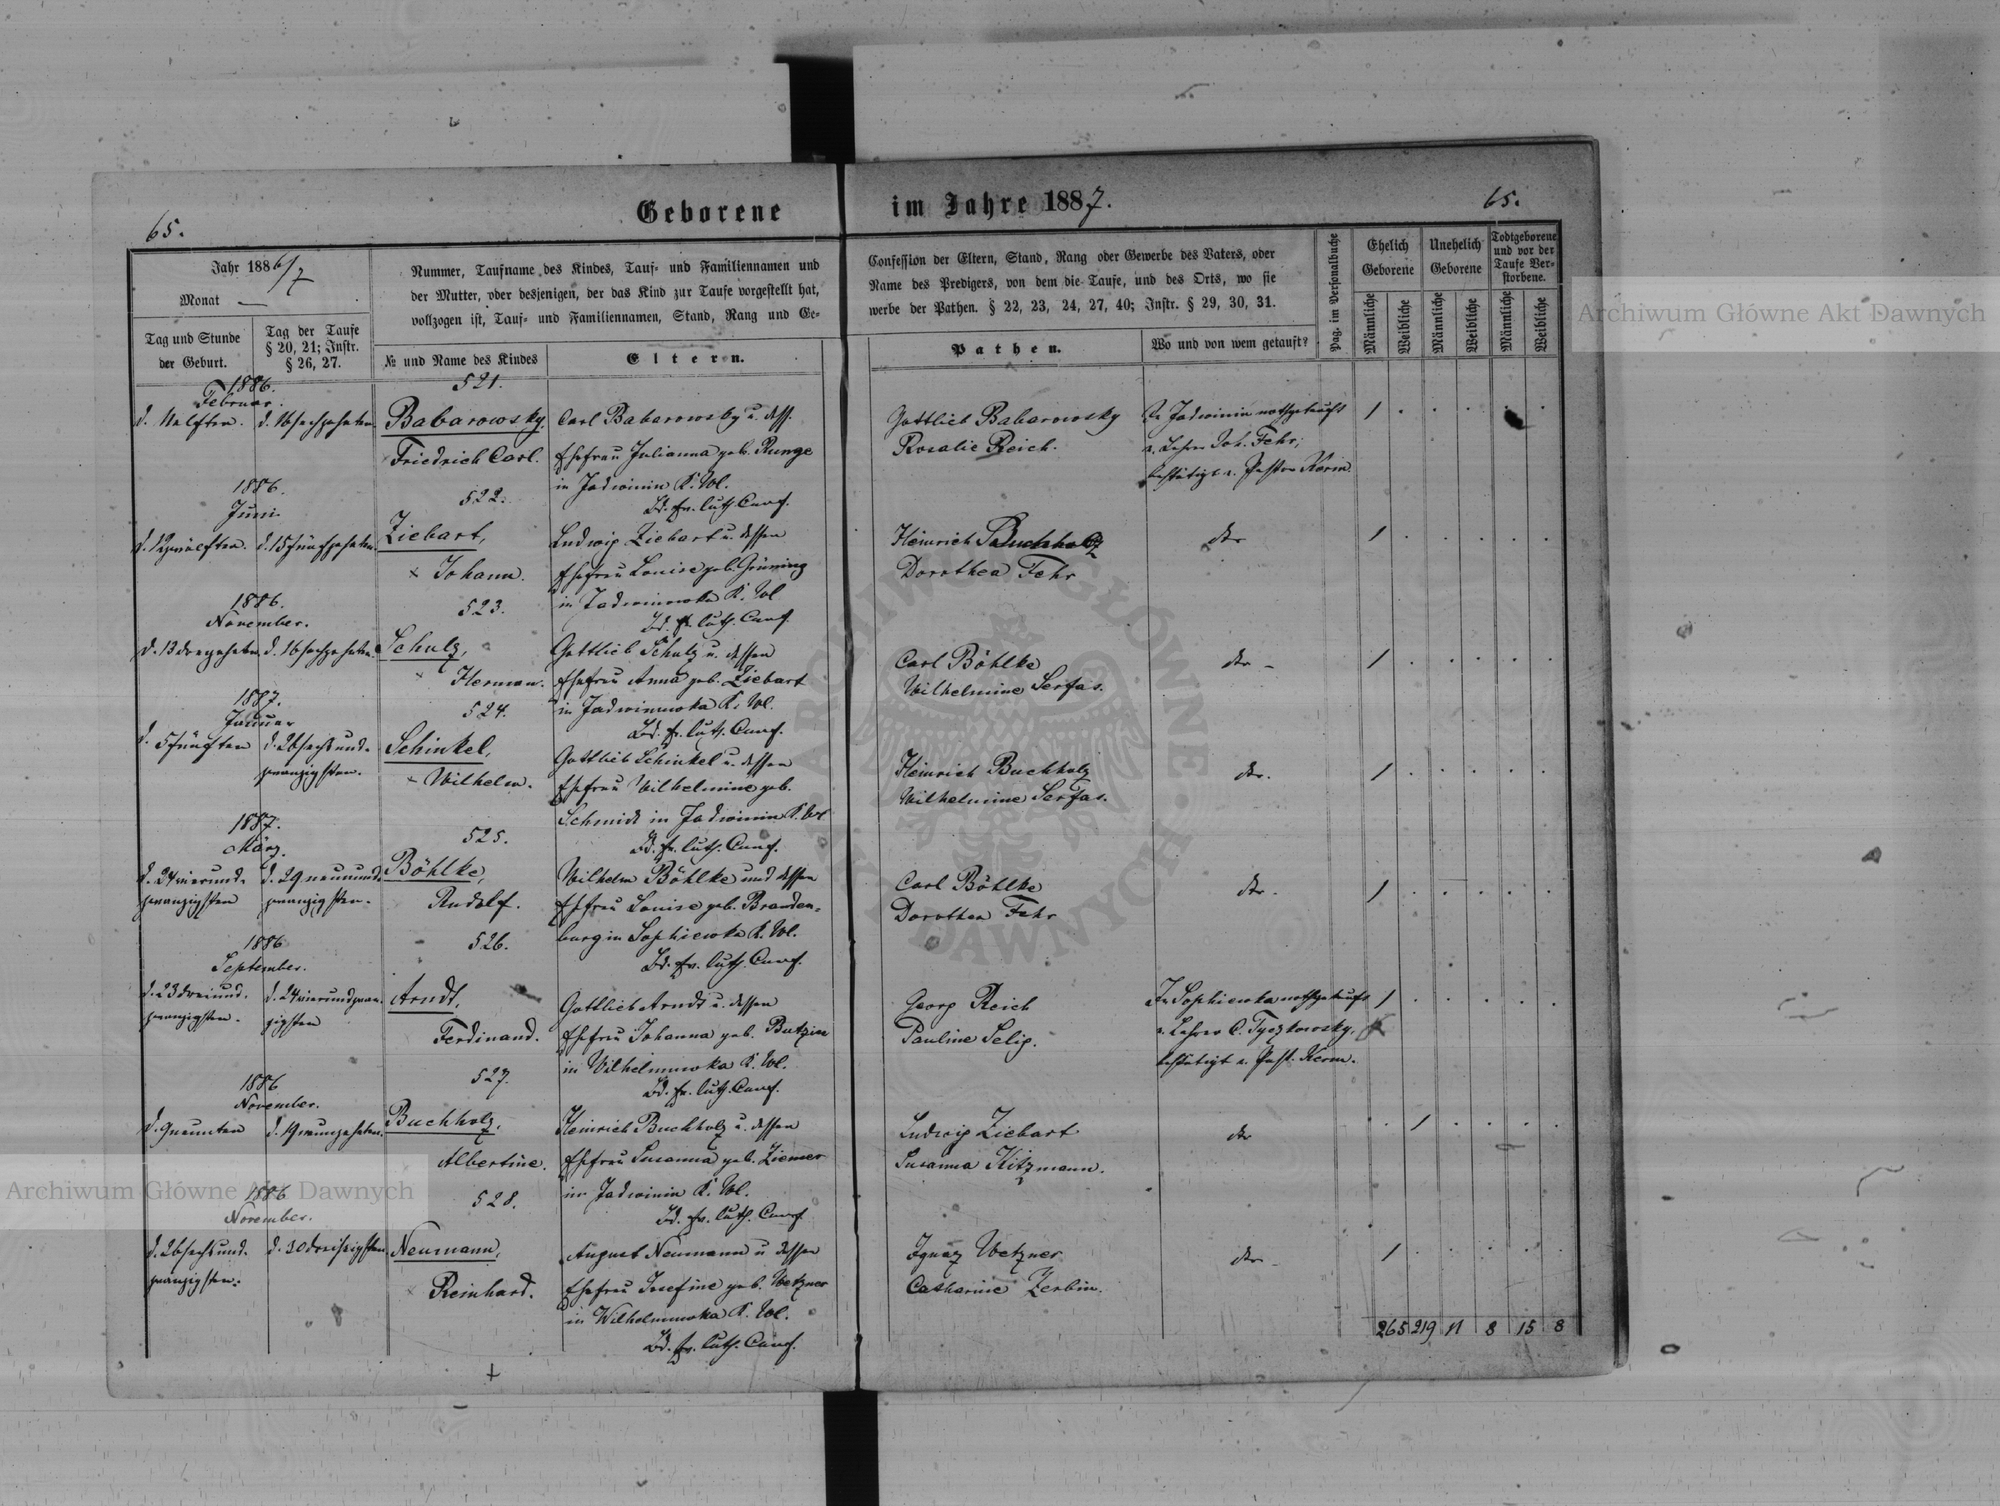 65.
Geborene
im Jahre 1887.
65.
Jahr 1886/7
Monat —
Tag und Stunde
der Geburt.
Tag der Taufe
§ 20, 21; Instr.
§ 26, 27.
Nummer, Taufname des Kindes, Tauf- und Familiennamen und
der Mutter, oder desjenigen, der das Kind zur Taufe vorgestellt hat,
vollzogen ist, Tauf- und Familiennamen, Stand, Rang und Ge-
№ und Name des Kindes
Eltern.
Confession der Eltern, Stand, Rang oder Gewerbe des Vaters, oder
Name des Predigers, von dem die Taufe, und des Orts, wo sie
werbe der Pathen. § 22, 23, 24, 27, 40; Instr. § 29, 30, 31.
Pathen.
Wo und von wem getauft?
Pag. im Personalbuche
Ehelich
Geborene
Unehelich
Geborene
Todtgeborene
und vor der
Taufe Ver-
storbene.
Männliche
Weibliche
Männliche
Weibliche
Männliche
Weibliche
1886.
Februar.
521.
d. 11 elften. d. 16 sechzehnten.
Babarowsky,
Friedrich Carl.
Carl Babarowsky u. dess.
Ehefrau Julianna geb. Runge
in Jadwinin K. Wol.
Bd. ev. luth. Conf.
Gottlieb Babarowsky
Rosalie Reich.
In Jadwinin nothgetauft
v. Lehrer Joh. Fehr;
bestätigt v. Pastor Kerm
1
1886.
Juni
522.
d. 12 zwölften. d. 15 fünfzehnten.
Ziebart,
× Johann.
Ludwig Ziebart u. dessen
Ehefrau Louise geb. Grüning
in Jadwinowka K. Wol
Bd. ev. luth. Conf.
Heinrich Buchholz
Dorothea Fehr
dto
1
1886.
November.
523.
d. 13 dreizehnten. d. 16 sechzehnten.
Schulz,
× Herman.
Gottlieb Schulz u. dessen
Ehefrau Anna geb. Ziebart
in Jadwinowka K. Wol.
Bd. ev. luth. Conf.
Carl Böhlke
Wilhelmine Serfas.
dto -
1
1887.
Januar
524.
d. 5 fünften d. 26 sechsund-
zwanzigsten.
Schinkel,
× Wilhelm.
Gottlieb Schinkel u. dessen
Ehefrau Wilhelmine geb.
Schmidt in Jadwinin K. Wol
Bd. ev. luth. Conf.
Heinrich Buchholz
Wilhelmine Serfas.
dto.
1
1887.
März.
525.
d. 24 vierund-
zwanzigsten
d. 29 neunund-
zwanzigsten.
Böhlke,
Rudolf.
Wilhelm Böhlke und dessen
Ehefrau Louise geb. Branden-
burg in Sophiewka K. Wol.
Bd. ev. luth. Conf.
Carl Böhlke
Dorothea Fehr
dto -
1
1886
September.
526.
d. 23 dreiund-
zwanzigsten.
d. 24 vierundzwan-
zigsten
Arndt,
Ferdinand.
Gottlieb Arndt u. dessen
Ehefrau Johanna geb. Butzin
in Wilhelmowka K. Wol.
Bd. ev. luth. Conf.
Georg Reich
Pauline Selig.
In Sophiewka nothgetauft
v. Lehrer C. Tyczkowsky,
bestätigt v. Past. Kerm.
1
1886
November.
527.
d. 9 neunten d. 19 neunzehnten.
Buchholz,
Albertine.
Heinrich Buchholz u. dessen
Ehefrau Susanna geb. Ziemer
in Jadwinin K. Wol.
Bd. ev. luth. Conf.
Ludwig Ziebart
Susanna Kitzmann.
dto
1
1886
November.
528.
d. 26 sechsund-
zwanzigsten.
d. 30 dreißigsten
Neumann,
× Reinhard.
August Neumann u. dessen
Ehefrau Josefine geb. Wetzner
in Wilhelmowka K. Wol.
Bd. ev. luth. Conf.
Ignaz Wetzner
Catharine Zerbin.
dto -
1
265 219 11 8 15 8
Archiwum Główne Akt Dawnych
Archiwum Główne Akt Dawnych
ARCHIWUM GŁÓWNE AKT DAWNYCH